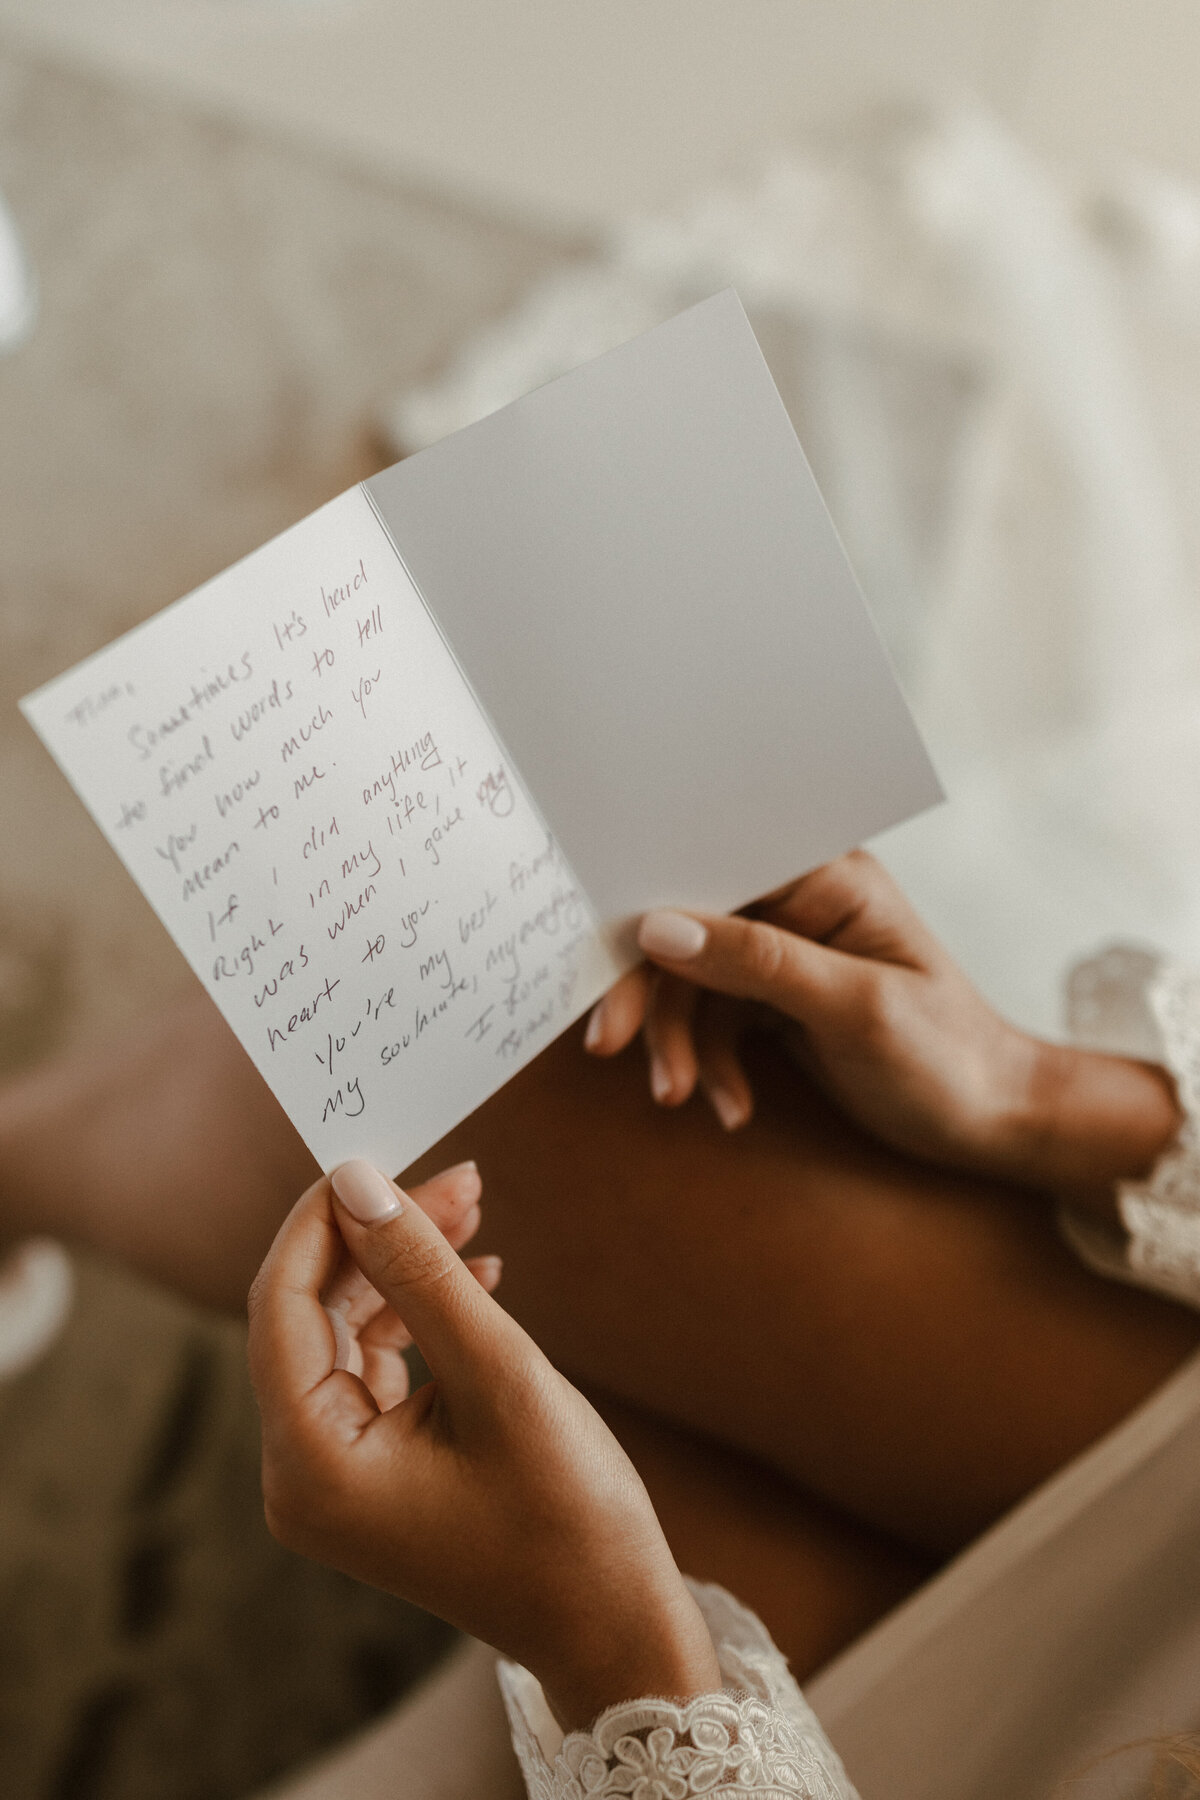 Sometimes It's hard
to find words to tell
you how much you
mean to me.
If I did anything
Right in my life, it
was when I gave my
heart to you.
You're my best friend
my soulmate, my everything
I love you